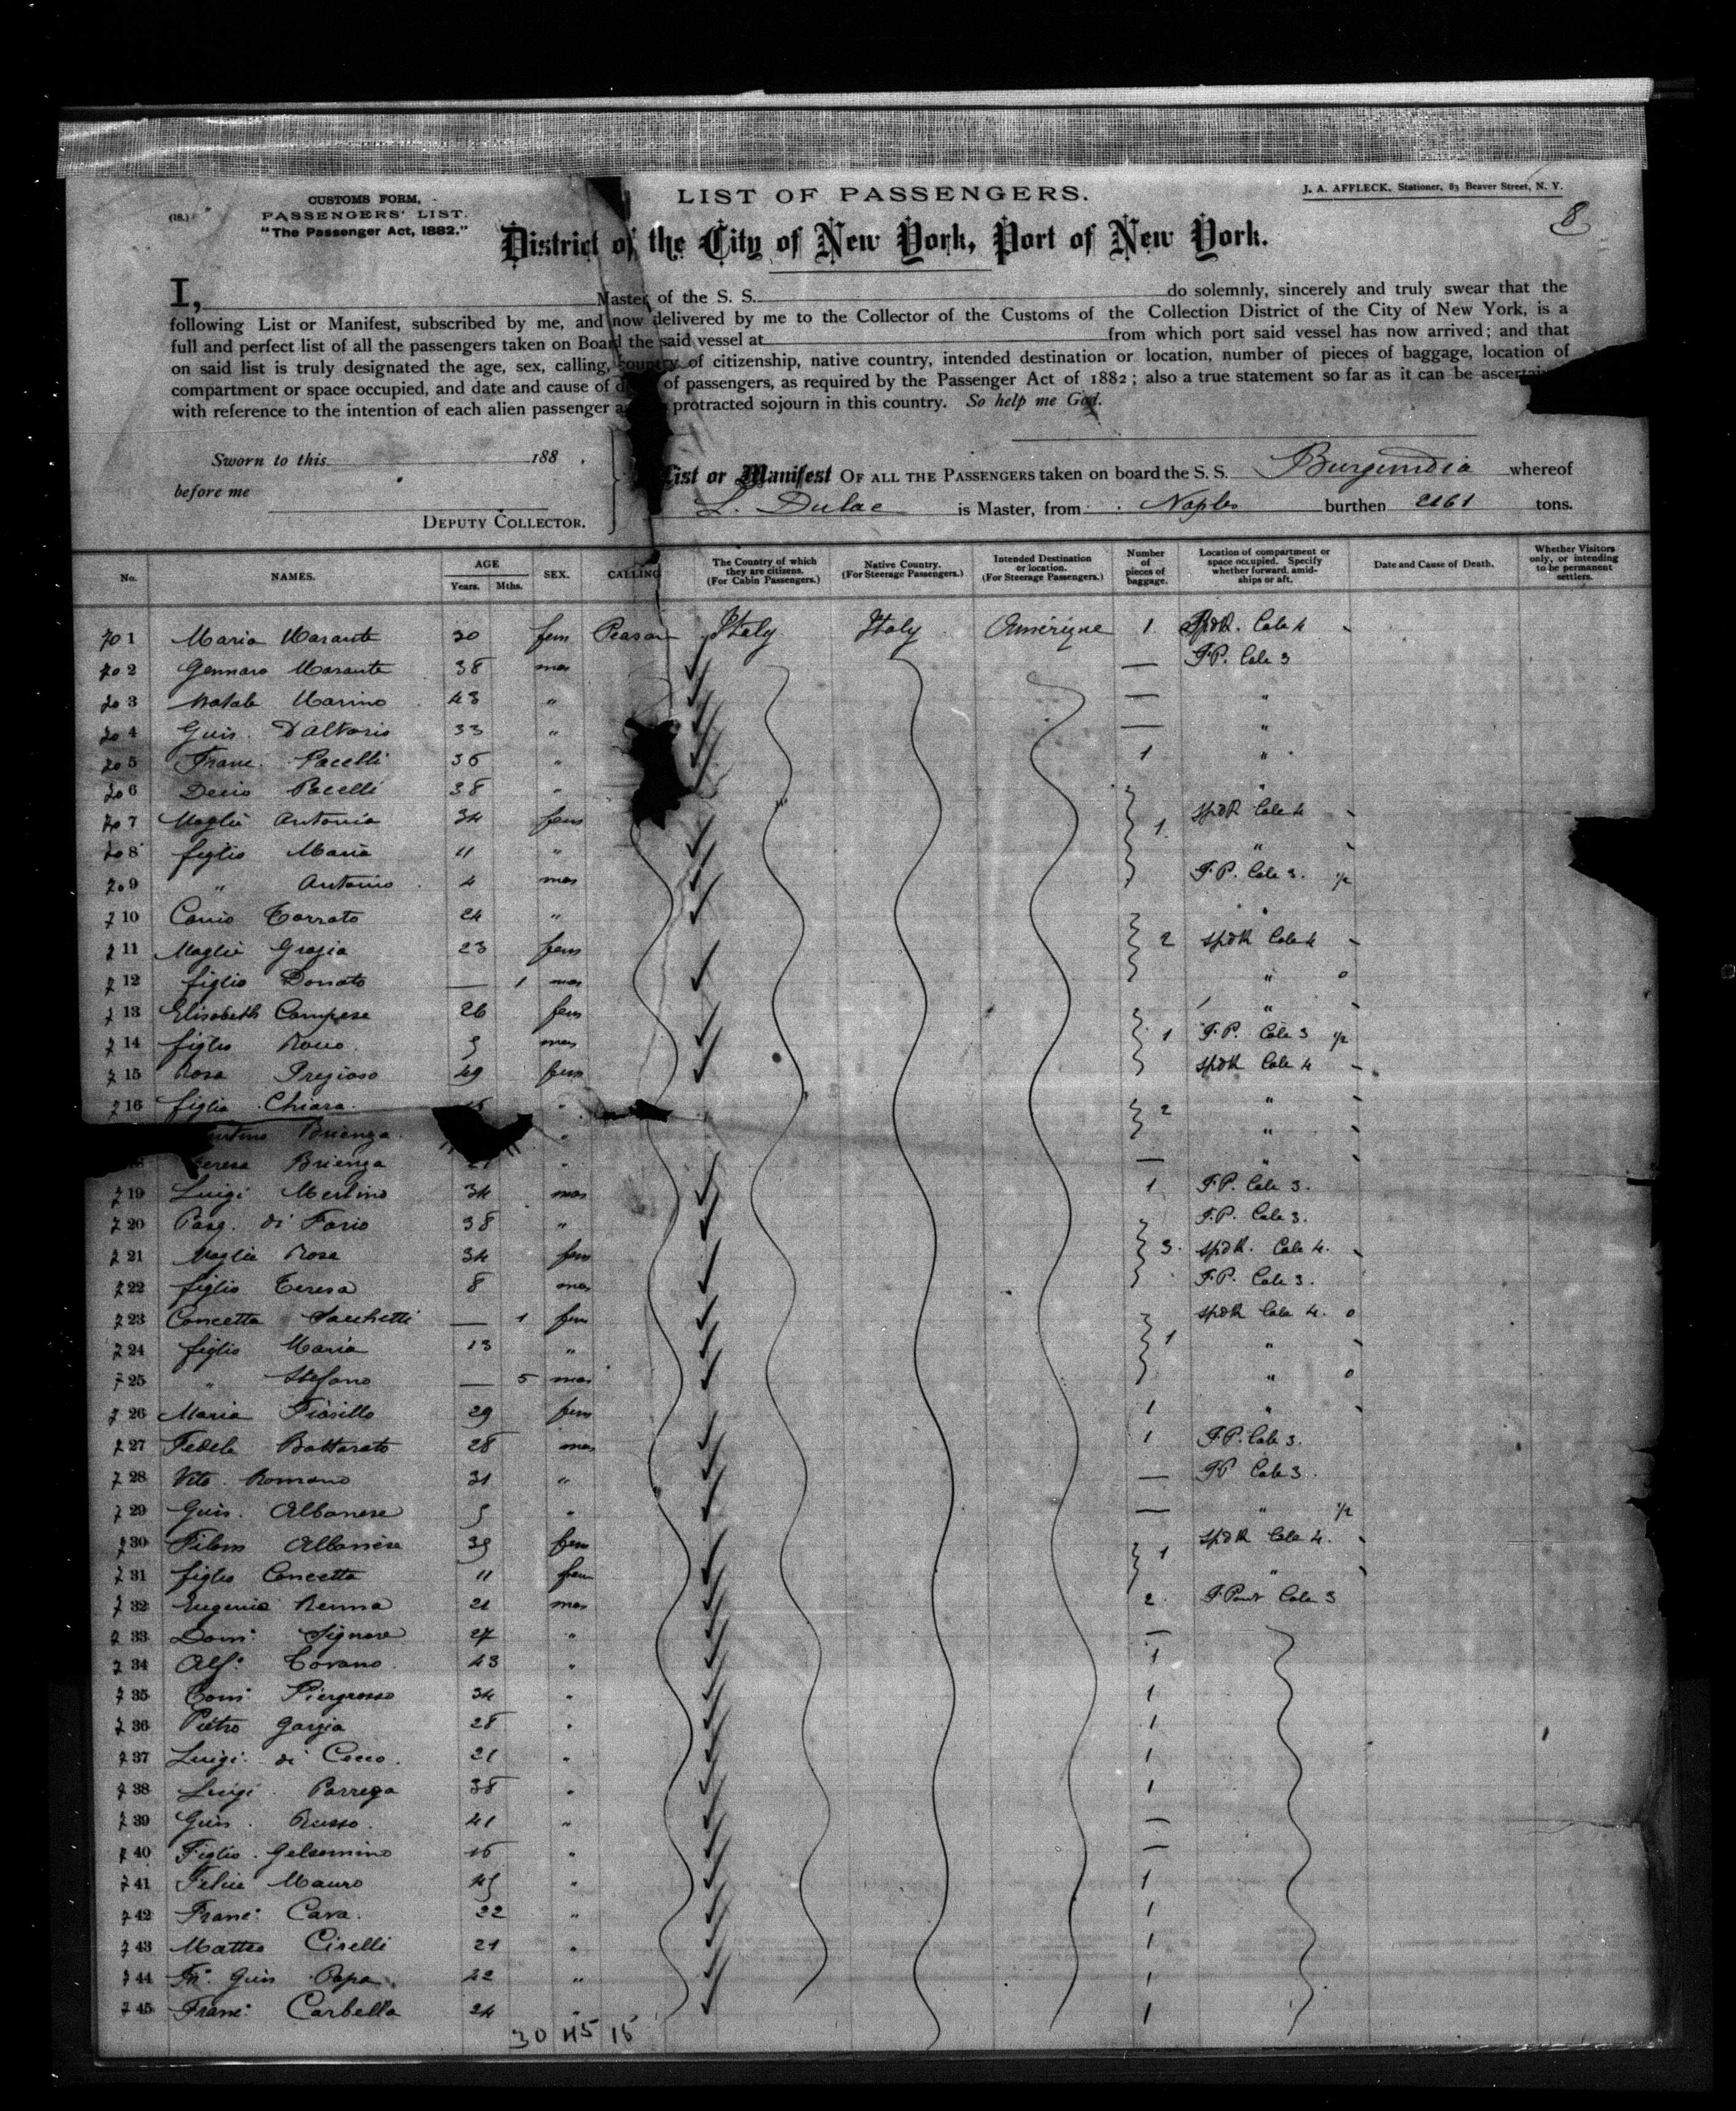 CUSTOMS FORM,
(18.) PASSENGERS' LIST.
"The Passenger Act, 1882."
LIST OF PASSENGERS.
J. A. AFFLECK, Stationer, 83 Beaver Street, N. Y.
8
District of the City of New York, Port of New York.
I, Master of the S. S. do solemnly, sincerely and truly swear that the
following List or Manifest, subscribed by me, and now delivered by me to the Collector of the Customs of the Collection District of the City of New York, is a
full and perfect list of all the passengers taken on Board the said vessel at from which port said vessel has now arrived; and that
on said list is truly designated the age, sex, calling, country of citizenship, native country, intended destination or location, number of pieces of baggage, location of
compartment or space occupied, and date and cause of of passengers, as required by the Passenger Act of 1882; also a true statement so far as it can be
with reference to the intention of each alien passenger protracted sojourn in this country. So help me God.
Sworn to this 188 .
before me
DEPUTY COLLECTOR.
List or Manifest OF ALL THE PASSENGERS taken on board the S. S. Burgundia whereof
L. Dulac is Master, from Naples burthen 2161 tons.
No. NAMES. AGE Years. Mths. SEX. CALLING The Country of which they are citizens. (For Cabin Passengers.) Native Country. (For Steerage Passengers.) Intended Destination or location. (For Steerage Passengers.) Number of pieces of baggage. Location of compartment or space occupied. Specify whether forward, amidships or aft. Date and Cause of Death. Whether Visitors only, or intending to be permanent settlers.
1 Maria Marante 30 fem Peasan Italy Italy Amérique 1 Spdk. Cale 4
2 Gennaro Marante 38 mas — F.P. Cale 3
3 Natale Marino 43 " — "
4 Guis. D'Altorio 33 " — "
5 Franc. Pacelli 36 " 1 "
6 Decio Pacelli 38 " "
7 Moglie Antonia 34 fem 1 Spdk Cale 4
8 figlio Maria 11 " "
9 " Antonio 4 mas F.P. Cale 3. 1/2
10 Canio Torrato 24 " "
11 Moglie Grazia 23 fem 2 Spdk Cale 4
12 figlio Donato — 1 mas " 0
13 Elisabeth Campese 26 fem "
14 figlio Rocco 9 mas 1 F.P. Cale 3 1/2
15 Rosa Pregioso 49 fem Spdk Cale 4
16 figlia Chiara " 2 "
Brienza " "
Teresa Brienza 21 " — "
19 Luigi Merlino 34 mas 1 F.P. Cale 3.
20 Pasq. di Fario 38 " F.P. Cale 3.
21 Moglie Rosa 34 fem 3. Spdk. Cale 4.
22 figlio Teresa 8 mas F.P. Cale 3.
23 Concetta Sacchetti — 1 fem Spdk Cale 4. 0
24 figlio Maria 13 " 1 "
25 " Stefano — 5 mas " 0
26 Maria Fiosillo 29 fem 1 "
27 Fedele Bottarato 28 mas 1 F.P. Cale 3.
28 Vito Romano 31 " — F.P. Cale 3.
29 Guis. Albanese 9 " — " 1/2
30 Filom Albanese 39 fem 1 Spdk Cale 4.
31 figlio Concetta 11 fem "
32 Eugenio Renna 21 mas 2 F. Pont Cale 3
33 Dom: Signore 27 " —
34 Alf: Tovano 43 " 1
35 Tom: Piergrosso 34 " 1
36 Pietro Gargia 28 " 1
37 Luigi di Cecco 21 " 1
38 Luigi Parrega 38 " 1
39 Guis. Russo 41 " —
40 Figlio Gelsomino 16 " —
41 Felice Mauro 49 " 1
42 Franc: Cava 22 " 1
43 Matteo Cirelli 21 " 1
44 Fr: Guis Papa 22 " 1
45 Franc: Carbella 24 " 1
30 45 15